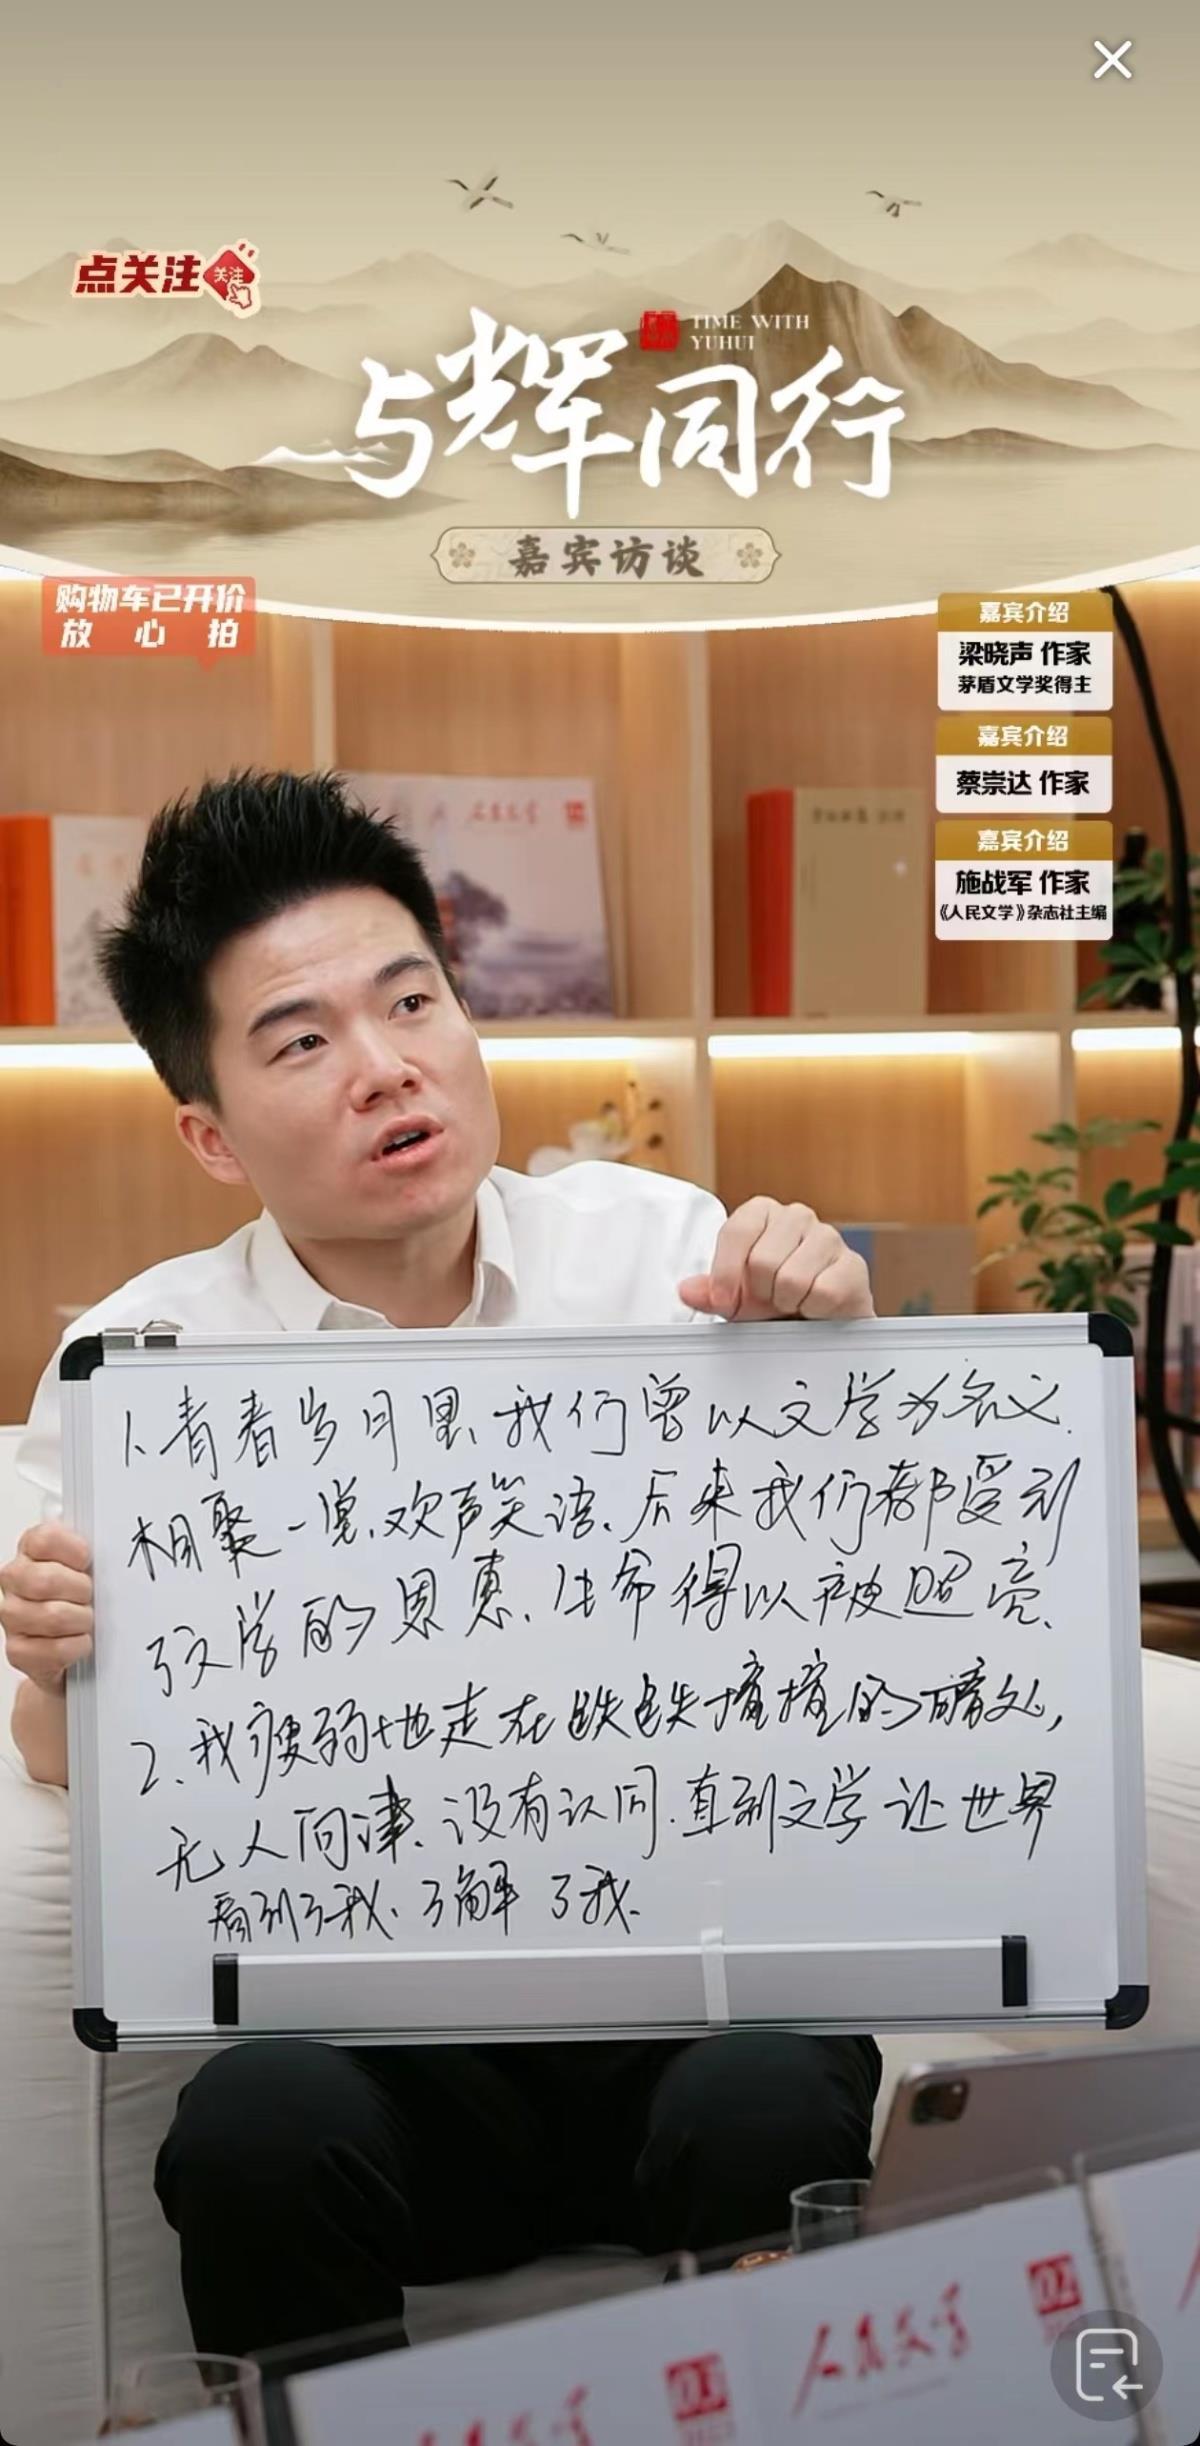 点关注
关注
TIME WITH
YUHUI
与辉同行
嘉宾访谈
购物车已开价
放心拍
嘉宾介绍
梁晓声 作家
茅盾文学奖得主
嘉宾介绍
蔡崇达 作家
嘉宾介绍
施战军 作家
《人民文学》杂志社主编
人民文学
1.青春岁月里,我们曾以文学为名义.
相聚一堂,欢声笑语.后来我们都受到
了文学的恩惠,生命得以被照亮.
2.我瘦弱地走在跌跌撞撞的暗处,
无人问津,没有认同.直到文学让世界
看到了我,了解了我.
人民文学
02
人民文学
03